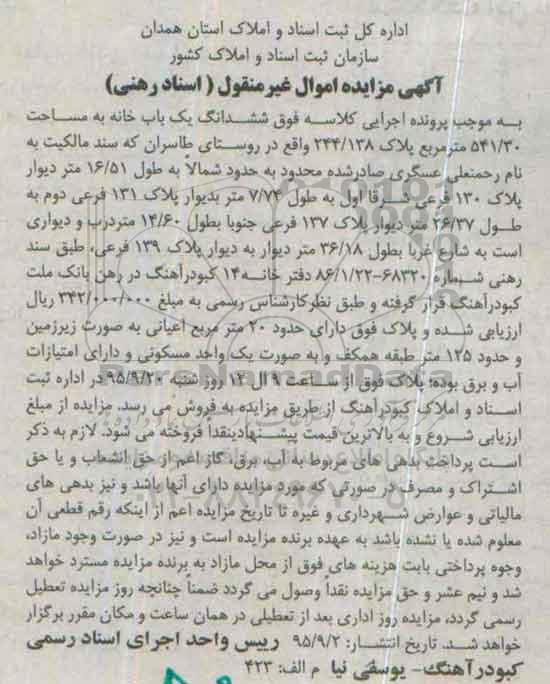 اداره کل ثبت اسناد و املاک استان همدان
سازمان ثبت اسناد و املاک کشور
آگهی مزایده اموال غیرمنقول ( اسناد رهنی)
به موجب پرونده اجرایی کلاسه فوق ششدانگ یک باب خانه به مساحت
۵۴۱/۳۰ مترمربع پلاک ۲۴۴/۱۳۸ واقع در روستای طاسران که سند مالکیت به
نام رحمتعلی عسگری صادرشده محدود به حدود شمالاً به طول ۱۶/۵۱ متر دیوار
پلاک ۱۳۰ فرعی شرقا اول به طول ۷/۷۴ متر بدیوار پلاک ۱۳۱ فرعی دوم به
طول ۲۶/۳۷ متر دیوار پلاک ۱۳۷ فرعی جنوبا بطول ۱۴/۶۰ متردرب و دیواری
است به شارع غربا بطول ۳۶/۱۸ متر دیوار به دیوار پلاک ۱۳۹ فرعی، طبق سند
رهنی شماره ۶۸۳۲۰-۸۶/۱/۲۲ دفتر خانه ۱۴ کبودرآهنگ در رهن بانک ملت
کبودرآهنگ قرار گرفته و طبق نظرکارشناس رسمی به مبلغ ۳۴۲/۰۰۰/۰۰۰ ریال
ارزیابی شده و پلاک فوق دارای حدود ۲۰ متر مربع اعیانی به صورت زیرزمین
و حدود ۱۲۵ متر طبقه همکف و به صورت یک واحد مسکونی و دارای امتیازات
آب و برق بوده؛ پلاک فوق از ساعت ۹ ال ۱۲ روز شنبه ۹۵/۹/۲۰ در اداره ثبت
اسناد و املاک کبودرآهنگ از طریق مزایده به فروش می رسد. مزایده از مبلغ
ارزیابی شروع و به بالاترین قیمت پیشنهادینقدا فروخته می شود. لازم به ذکر
است پرداخت بدهی های مربوط به آب، برق، گاز اعم از حق انشعاب و یا حق
اشتراک و مصرف در صورتی که مورد مزایده دارای آنها باشد و نیز بدهی های
مالیاتی و عوارض شهرداری و غیره تا تاریخ مزایده اعم از اینکه رقم قطعی آن
معلوم شده یا نشده باشد به عهده برنده مزایده است و نیز در صورت وجود مازاد،
وجوه پرداختی بابت هزینه های فوق از محل مازاد به برنده مزایده مسترد خواهد
شد و نیم عشر و حق مزایده نقداً وصول می گردد ضمناً چنانچه روز مزایده تعطیل
رسمی گردد، مزایده روز اداری بعد از تعطیلی در همان ساعت و مکان مقرر برگزار
خواهد شد. تاریخ انتشار: ۹۵/۹/۲ رییس واحد اجرای اسناد رسمی
کبودرآهنگ- یوسفی نیا م الف: ۴۲۳
ParsNamadData